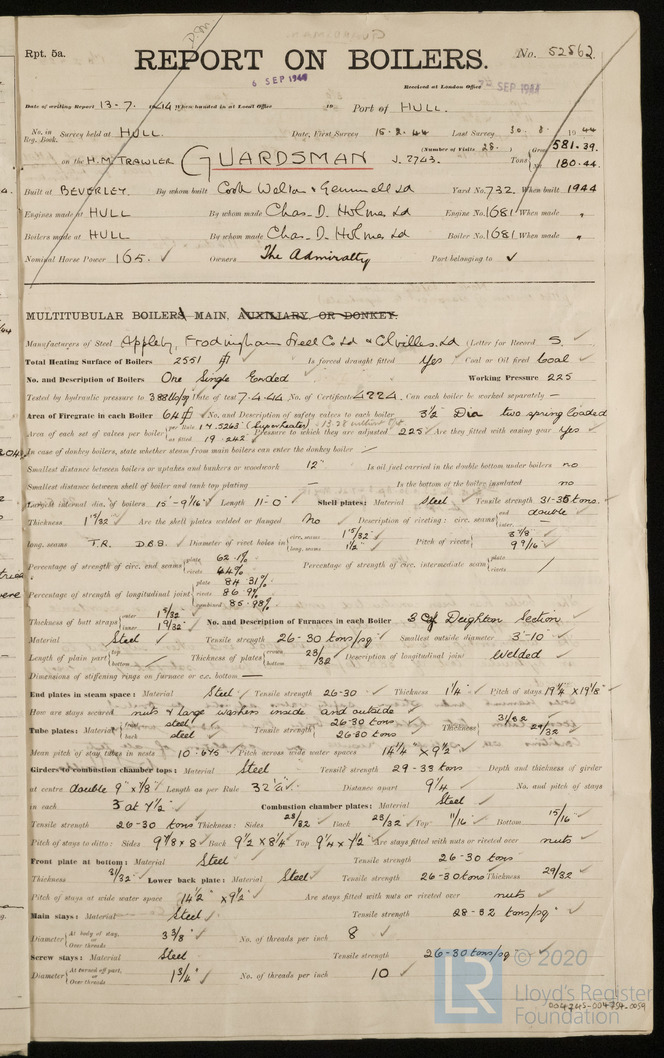 Rpt. 5a.
REPORT ON BOILERS.
No. 52562.
6 SEP 1944
Received at London Office
SEP 1944
Date of writing Report 13-7. 1944 When handed in at Local Office 19 Port of HULL.
No. in Reg. Book. Survey held at HULL. Date, First Survey 15.2.44 Last Survey 30.8. 1944
(Number of Visits 28.)
on the H.M. TRAWLER GUARDSMAN J. 2743. Tons Gross 581.39. Net 180.44.
Built at BEVERLEY. By whom built Cook Welton & Gemmell Ld Yard No. 732. When built 1944
Engines made at HULL By whom made Chas. D. Holmes Ld Engine No. 1681 When made "
Boilers made at HULL By whom made Chas. D. Holmes Ld Boiler No. 1681 When made "
Nominal Horse Power 165. Owners The Admiralty Port belonging to
MULTITUBULAR BOILERS MAIN, AUXILIARY, OR DONKEY.
Manufacturers of Steel Appleby, Frodingham Steel Co Ld & Colvilles Ld (Letter for Record S.
Total Heating Surface of Boilers 2551 ft Is forced draught fitted Yes Coal or Oil fired Coal
No. and Description of Boilers One Single Ended Working Pressure 225
Tested by hydraulic pressure to 388 lbs/sq" Date of test 7-4-44 No. of Certificate 4224. Can each boiler be worked separately —
Area of Firegrate in each Boiler 64 ft No. and Description of safety valves to each boiler 3½ Dia two spring loaded
Area of each set of valves per boiler per Rule 14.5263 (Superheater) as fitted 19.242 Pressure to which they are adjusted 225 Are they fitted with easing gear Yes
In case of donkey boilers, state whether steam from main boilers can enter the donkey boiler —
Smallest distance between boilers or uptakes and bunkers or woodwork 12" Is oil fuel carried in the double bottom under boilers no
Smallest distance between shell of boiler and tank top plating — Is the bottom of the boiler insulated no
Largest internal dia. of boilers 15'-9 1/16" Length 11'-0" Shell plates: Material Steel Tensile strength 31-35 tons.
Thickness 1 5/32 Are the shell plates welded or flanged No Description of riveting: circ. seams end double inter.
long. seams T.R. D.B.S. Diameter of rivet holes in circ. seams 1 15/32 long. seams 1½" Pitch of rivets 3 7/8 9 9/16
Percentage of strength of circ. end seams plate 62.1% rivets 44% Percentage of strength of circ. intermediate seam plate rivets
Percentage of strength of longitudinal joint plate 84.31% rivets 86.9% combined 85.98%
Thickness of butt straps outer 1 5/32 inner 1 9/32 No. and Description of Furnaces in each Boiler 3 Cf Deighton Section
Material Steel Tensile strength 26-30 tons/sq" Smallest outside diameter 3'-10"
Length of plain part top bottom Thickness of plates crown bottom 23/32 Description of longitudinal joint Welded
Dimensions of stiffening rings on furnace or c.c. bottom —
End plates in steam space: Material Steel Tensile strength 26-30 Thickness 1¼" Pitch of stays 19¼ x 19 1/8
How are stays secured nuts & large washers inside and outside
Tube plates: Material front steel back steel Tensile strength 26-30 tons 26-30 tons Thickness 31/32 29/32
Mean pitch of stay tubes in nests 10.675 Pitch across wide water spaces 14¼ x 9½"
Girders to combustion chamber tops: Material Steel Tensile strength 29-33 tons Depth and thickness of girder
at centre double 9" x 7/8" Length as per Rule Distance apart 9¼ No. and pitch of stays
in each 3 at 7½" Combustion chamber plates: Material Steel
Tensile strength 26-30 tons Thickness: Sides 23/32 Back 23/32 Top 11/16 Bottom 15/16
Pitch of stays to ditto: Sides 9 7/8 x 8 Back 9½ x 8¼ Top 9¼ x 7½" Are stays fitted with nuts or riveted over nuts
Front plate at bottom: Material Steel Tensile strength 26-30 tons
Thickness 31/32 Lower back plate: Material Steel Tensile strength 26-30 tons Thickness 29/32
Pitch of stays at wide water space 14½" x 9½" Are stays fitted with nuts or riveted over nuts
Main stays: Material Steel Tensile strength 28-32 tons/sq"
Diameter At body of stay, or Over threads 3 3/8" No. of threads per inch 8
Screw stays: Material Steel Tensile strength 26-30 tons/sq"
Diameter At turned off part, or Over threads 1¾" No. of threads per inch 10
© 2020
Lloyd's Register
Foundation
004745-004754-0059